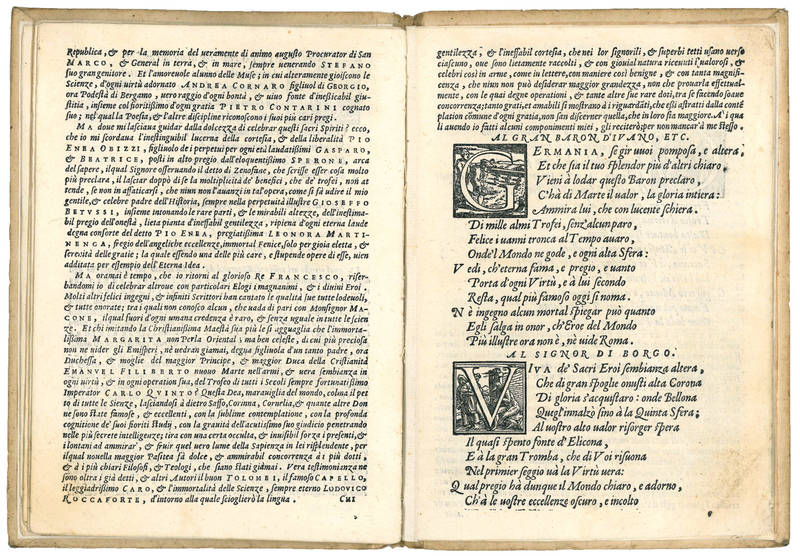 Republica, & per la memoria del ueramente di animo augusto Procurator di San
MARCO, & General in terra, & in mare, sempre uenerando STEFANO
suo gran genitore. Et l'amoreuole alunno delle Muse; in cui alteramente gioiscono le
Scienze, d'ogni uirtù adornato ANDREA CORNARO figliuol di GEORGIO,
ora Podestà di Bergamo, uero raggio d'ogni bontà, & uiuo fonte d'inescicabil giu-
stitia, insieme col fioritissimo d'ogni gratia PIETRO CONTARINI cognato
suo; nel qual la Poesia, & l'altre discipline riconoscono i suoi più cari pregi.
MA doue mi lasciaua guidar dalla dolcezza di celebrar questi sacri Spiriti? ecco,
che io mi scordaua l'inestinguibil lucerna della cortesia, & della liberalità PIO
ENEA OBIZZI, figliuolo de i perpetui per ogni età laudatissimi GASPARO,
& BEATRICE, posti in alto pregio dall'eloquentissimo SPERONE, arca
del sapere, il qual Signore osseruando il detto di Zenofane, che scrisse esser cosa molto
più preclara, il lasciar doppò di se la moltiplicità de' benefici, che de' trofei, non at
tende, se non in affaticarsi, che niun non l'auanzi in tal'opera, come si fà udire il mio
gentile, & celebre padre dell'Historia, sempre nella perpetuità illustre GIOSEFFO
BETVSSI, insieme intonando le rare parti, & le mirabili altezze, dell'inestima-
bil pregio dell'onestà, lieta pianta d'ineffabil gentilezza, ripiena d'ogni eterna laude
degna consorte del detto PIO ENEA, pregiatissima LEONORA MARTI-
NENGA, fregio dell'angeliche eccellenze, immortal Fenice, sol per gioia eletta, &
serenità delle gratie; la quale essendo una delle più care, & stupende opere di esse, uien
additata per essempio dell'Eterna Idea.
MA oramai è tempo, che io ritorni al glorioso Re FRANCESCO, riser-
bandomi io di celebrar altroue con particolari Elogi i magnanimi, & i diuini Eroi.
Molti altri felici ingegni, & infiniti Scrittori han cantato le qualità sue tutte lodeuoli,
& tutte onorate; tra i quali non conosco alcun, che uada di pari con Monsignor MA-
CONE, il qual fuori d'ogni umana credenza è raro, & senza uguale in tutte le scien
ze. Et chi imitando la Christianissima Maestà sua più le si agguaglia che l'immorta-
lissima MARGARITA non Perla Oriental; ma ben celeste, di cui più preciosa
non ne uider gli Emisperi, nè uedran giamai, degna figliuola d'un tanto padre, ora
Duchessa, & moglie del maggior Principe, & maggior Duca della Christianità
EMANVEL FILIBERTO nuouo Marte nell'armi, & uera sembianza in
ogni uirtù, & in ogni operation sua, del Trofeo di tutti i Secoli sempre fortunatissimo
Imperator CARLO QVINTO? Questa Dea, marauiglia del mondo, colma il pet
to di tutte le Scienze, lasciandosi à dietro Saffo, Corinna, Cornelia, & quante altre Don
ne sono state famose, & eccellenti, con la sublime contemplatione, con la profonda
cognitione de' suoi fioriti studij, con la grauità dell'acutissimo suo giudicio penetrando
nelle più secrete intelligenze; tira con una certa occulta, & inuisibil forza i presenti, &
i lontani ad ammirar', & fruir quel uero lume della Sapienza in lei risplendente, per
il qual nouella maggior Pasitea fà dolce, & ammirabil concorrenza à i più dotti,
& à i più chiari Filosofi, & Teologi, che siano stati giamai. Vera testimonianza ne
sono oltra i già detti, & altri Autori il buon TOLOMEI, il famoso CAPELLO,
il leggiadrissimo CARO, & l'immortalità delle Scienze, sempre eterno LODOVICO
ROCCAFORTE, d'intorno alla quale scioglierò la lingua. CHI
gentilezza, & l'ineffabil cortesia, che nei lor signorili, & superbi tetti usano uerso
ciascuno, oue sono lietamente raccolti, & con giouial natura riceuuti i ualorosi, &
celebri così in arme, come in lettere, con maniere così benigne, & con tanta magnifi-
cenza, che niun non può desiderar maggior grandezza, non che prouarla effettual-
mente, con le quai degne operationi, & tante altre sue rare doti, tra se facendo soaue
concorrenza; tanto grati, et amabili si mostrano à i riguardati, che essi astratti dalla conte
plation comune d'ogni gratia, non san discerner quella, che in loro sia maggiore. A i qua
li auendo io fatti alcuni componimenti miei, gli reciterò per non mancar' à me stesso.
AL GRAN BARON D'IVANO, ETC.
GERMANIA, se gir uuoi pomposa, e altera,
Et che sia il tuo splendor più d'altri chiaro,
Vieni à lodar questo Baron preclaro,
C'hà di Marte il ualor, la gloria intiera:
Ammira lui, che con lucente schiera.
Di mille almi Trofei, senz'alcun paro,
Felice i uanni tronca al Tempo auaro,
Onde'l Mondo ne gode, e ogni alta Sfera:
Vedi, ch'eterna fama, e pregio, e uanto
Porta d'ogni Virtù, e à lui secondo
Resta, qual più famoso oggi si noma.
Nè ingegno alcun mortal spiegar può quanto
Egli salga in onor, ch'Eroe del Mondo
Più illustre ora non è, nè uide Roma.
AL SIGNOR DI BORGO.
VIVA de' Sacri Eroi sembianza altera,
Che di gran spoglie onusti alta Corona
Di gloria s'acquistaro: onde Bellona
Quegl'innalzò sino à la Quinta Sfera;
Al uostro alto ualor risorger spera
Il quasi spento fonte d'Elicona,
E à la gran Tromba, che di Voi risuona
Nel primier seggio uà la Virtù uera:
Qual pregio hà dunque il Mondo chiaro, e adorno,
Ch'à le uostre eccellenze oscuro, e incolto